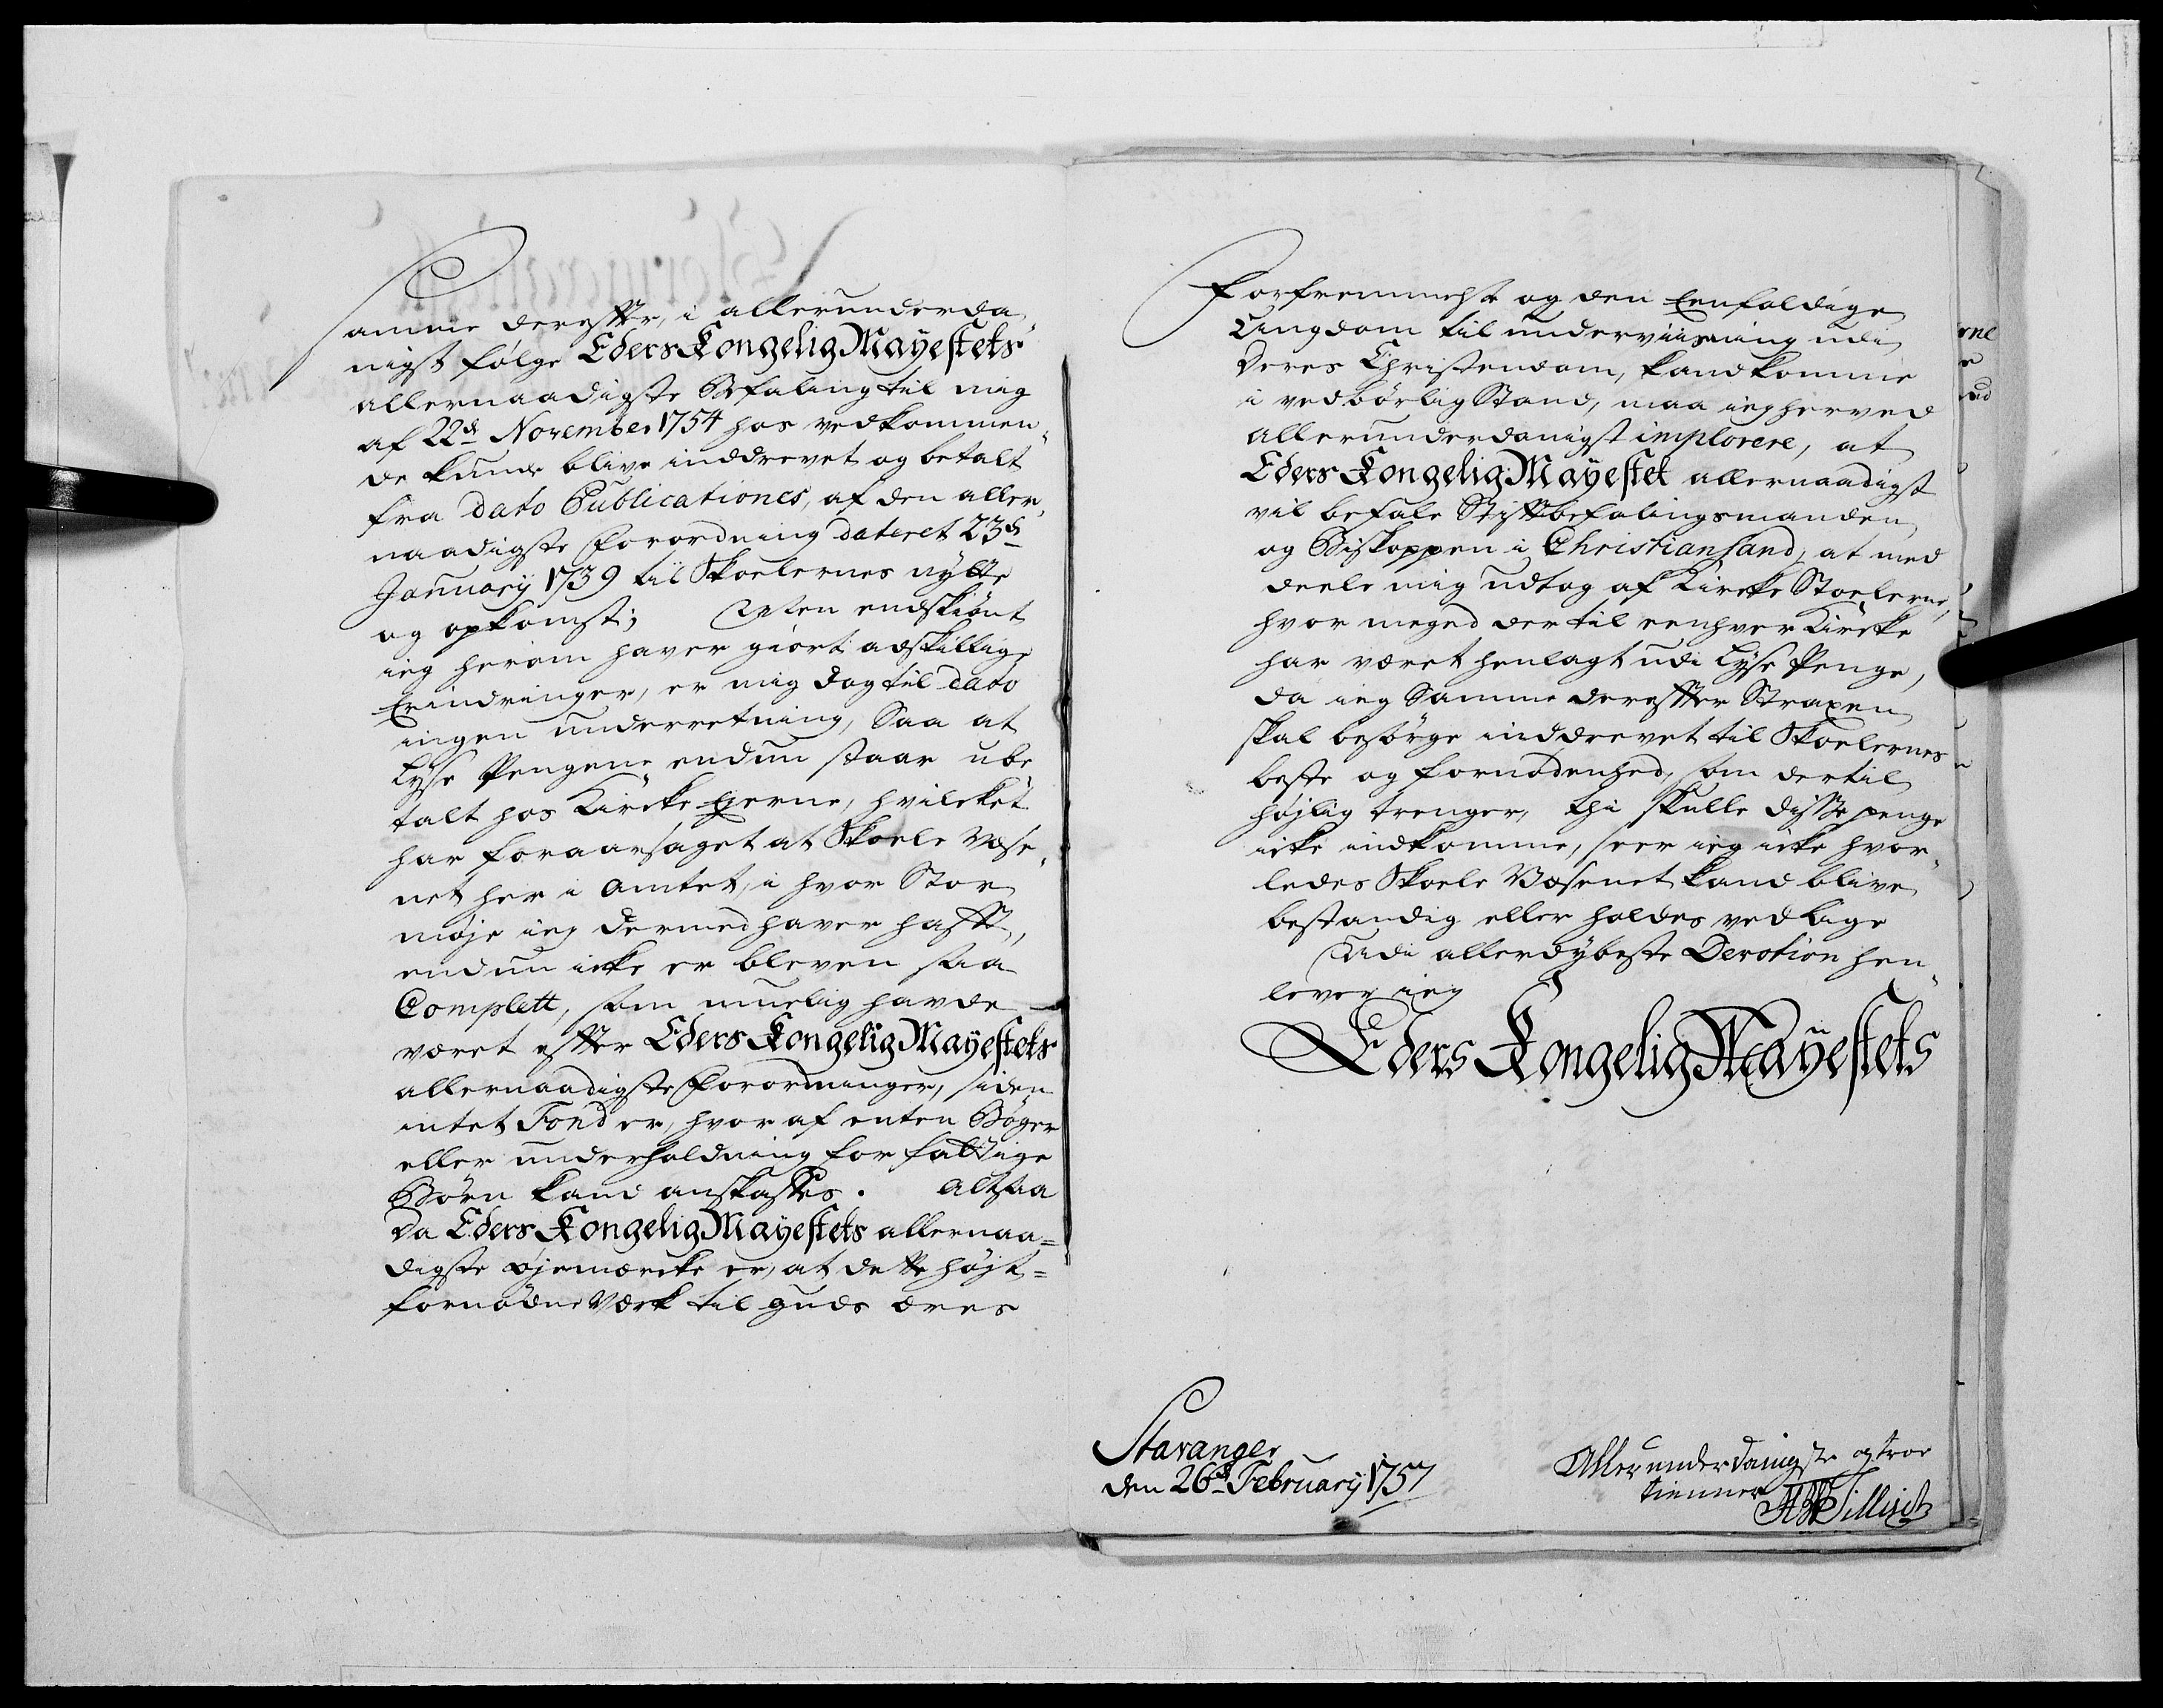 Samme derefter, i allerunderda„
nigst følge Eders Kongelig Mayestets
allernaadigste Befaling til mig
af 22de November 1754 hos vedkommen„
de kunde blive inddrevet og betalt
fra dato Publicationes, af den aller„
naadigste Forordning dateret 23de
January 1739 til Skoelernes nytte
og opkomst; Men endskiönt
ieg herom haver giort adskillige
Erindringer, er mig dog til dato
ingen underretning, Saa at
Lyse Pengene endnu staar ube„
talt hos Kircke Eyerne, hvilcket
har foraarsaget at Skoele Væse„
net her i Amtet, i hvor Stor
møje ieg dermed haver hafft,
endnu icke er bleven saa
Complett, som muelig havde
været efter Eders Kongelig Mayestets
allernaadigste Forordninger, siden
intet Fond er, hvor af enten Bøger
eller underholdning for fattige
Börn kand anskaffes. Altsaa
da Eders Kongelig Mayestets allernaa=
digste øjemærcke er, at dette højt=
fornødne Værk til Guds æres
Forfremmelse og den Eenfoldige
Ungdom til underviisning udi
deres Christendom, kand komme
i vedbørlig Stand, maa ieg herved
allerunderdanigst implorere, at
Eders Kongelig Mayestet allernaadigst
vil befale Stiftbefalingsmanden
og Biskoppen i Christiansand, at med
deele mig udtog af Kircke Stoelerne,
hvor meged der til eenhver Kircke
har været henlagt udi Lyse Penge,
da ieg Samme derefter Straxen
skal besørge inddrevet til Skoelernes
beste og fornødenhed, som dertil
højlig trenger, thi skulle disse penge
icke indkomme, seer ieg icke hvor„
ledes Skoele Væsenet kand blive
bestandig eller holdes ved lige
Udi allerdybeste Devotion hen„
lever ieg
Eders Kongelig Mayestets
Stavanger
den 26de February 1757
Allerunderdanigste og troe
tienner
Tillisch